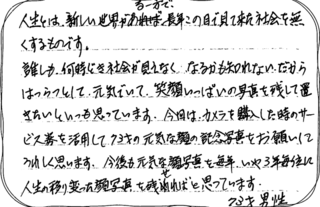 る一方で、
人生とは、新しい世界があれば長年この目で見て来た社会を無
くするものです。
誰しも、何時どき社会が見えなく なるかも知れない だから
はつらつとして、元気でいて、笑顔いっぱいの写真を残して置
きたいといつも思っています。今回は、カメラを購入した時のサー
ビス券を活用して 73才の元気な顔の記念写真をお願いして
うれしく思います。今後も元気な顔写真を毎年、いや3年毎位に
人生の移り変った顔写真を残せればと思っています。
73才 男性